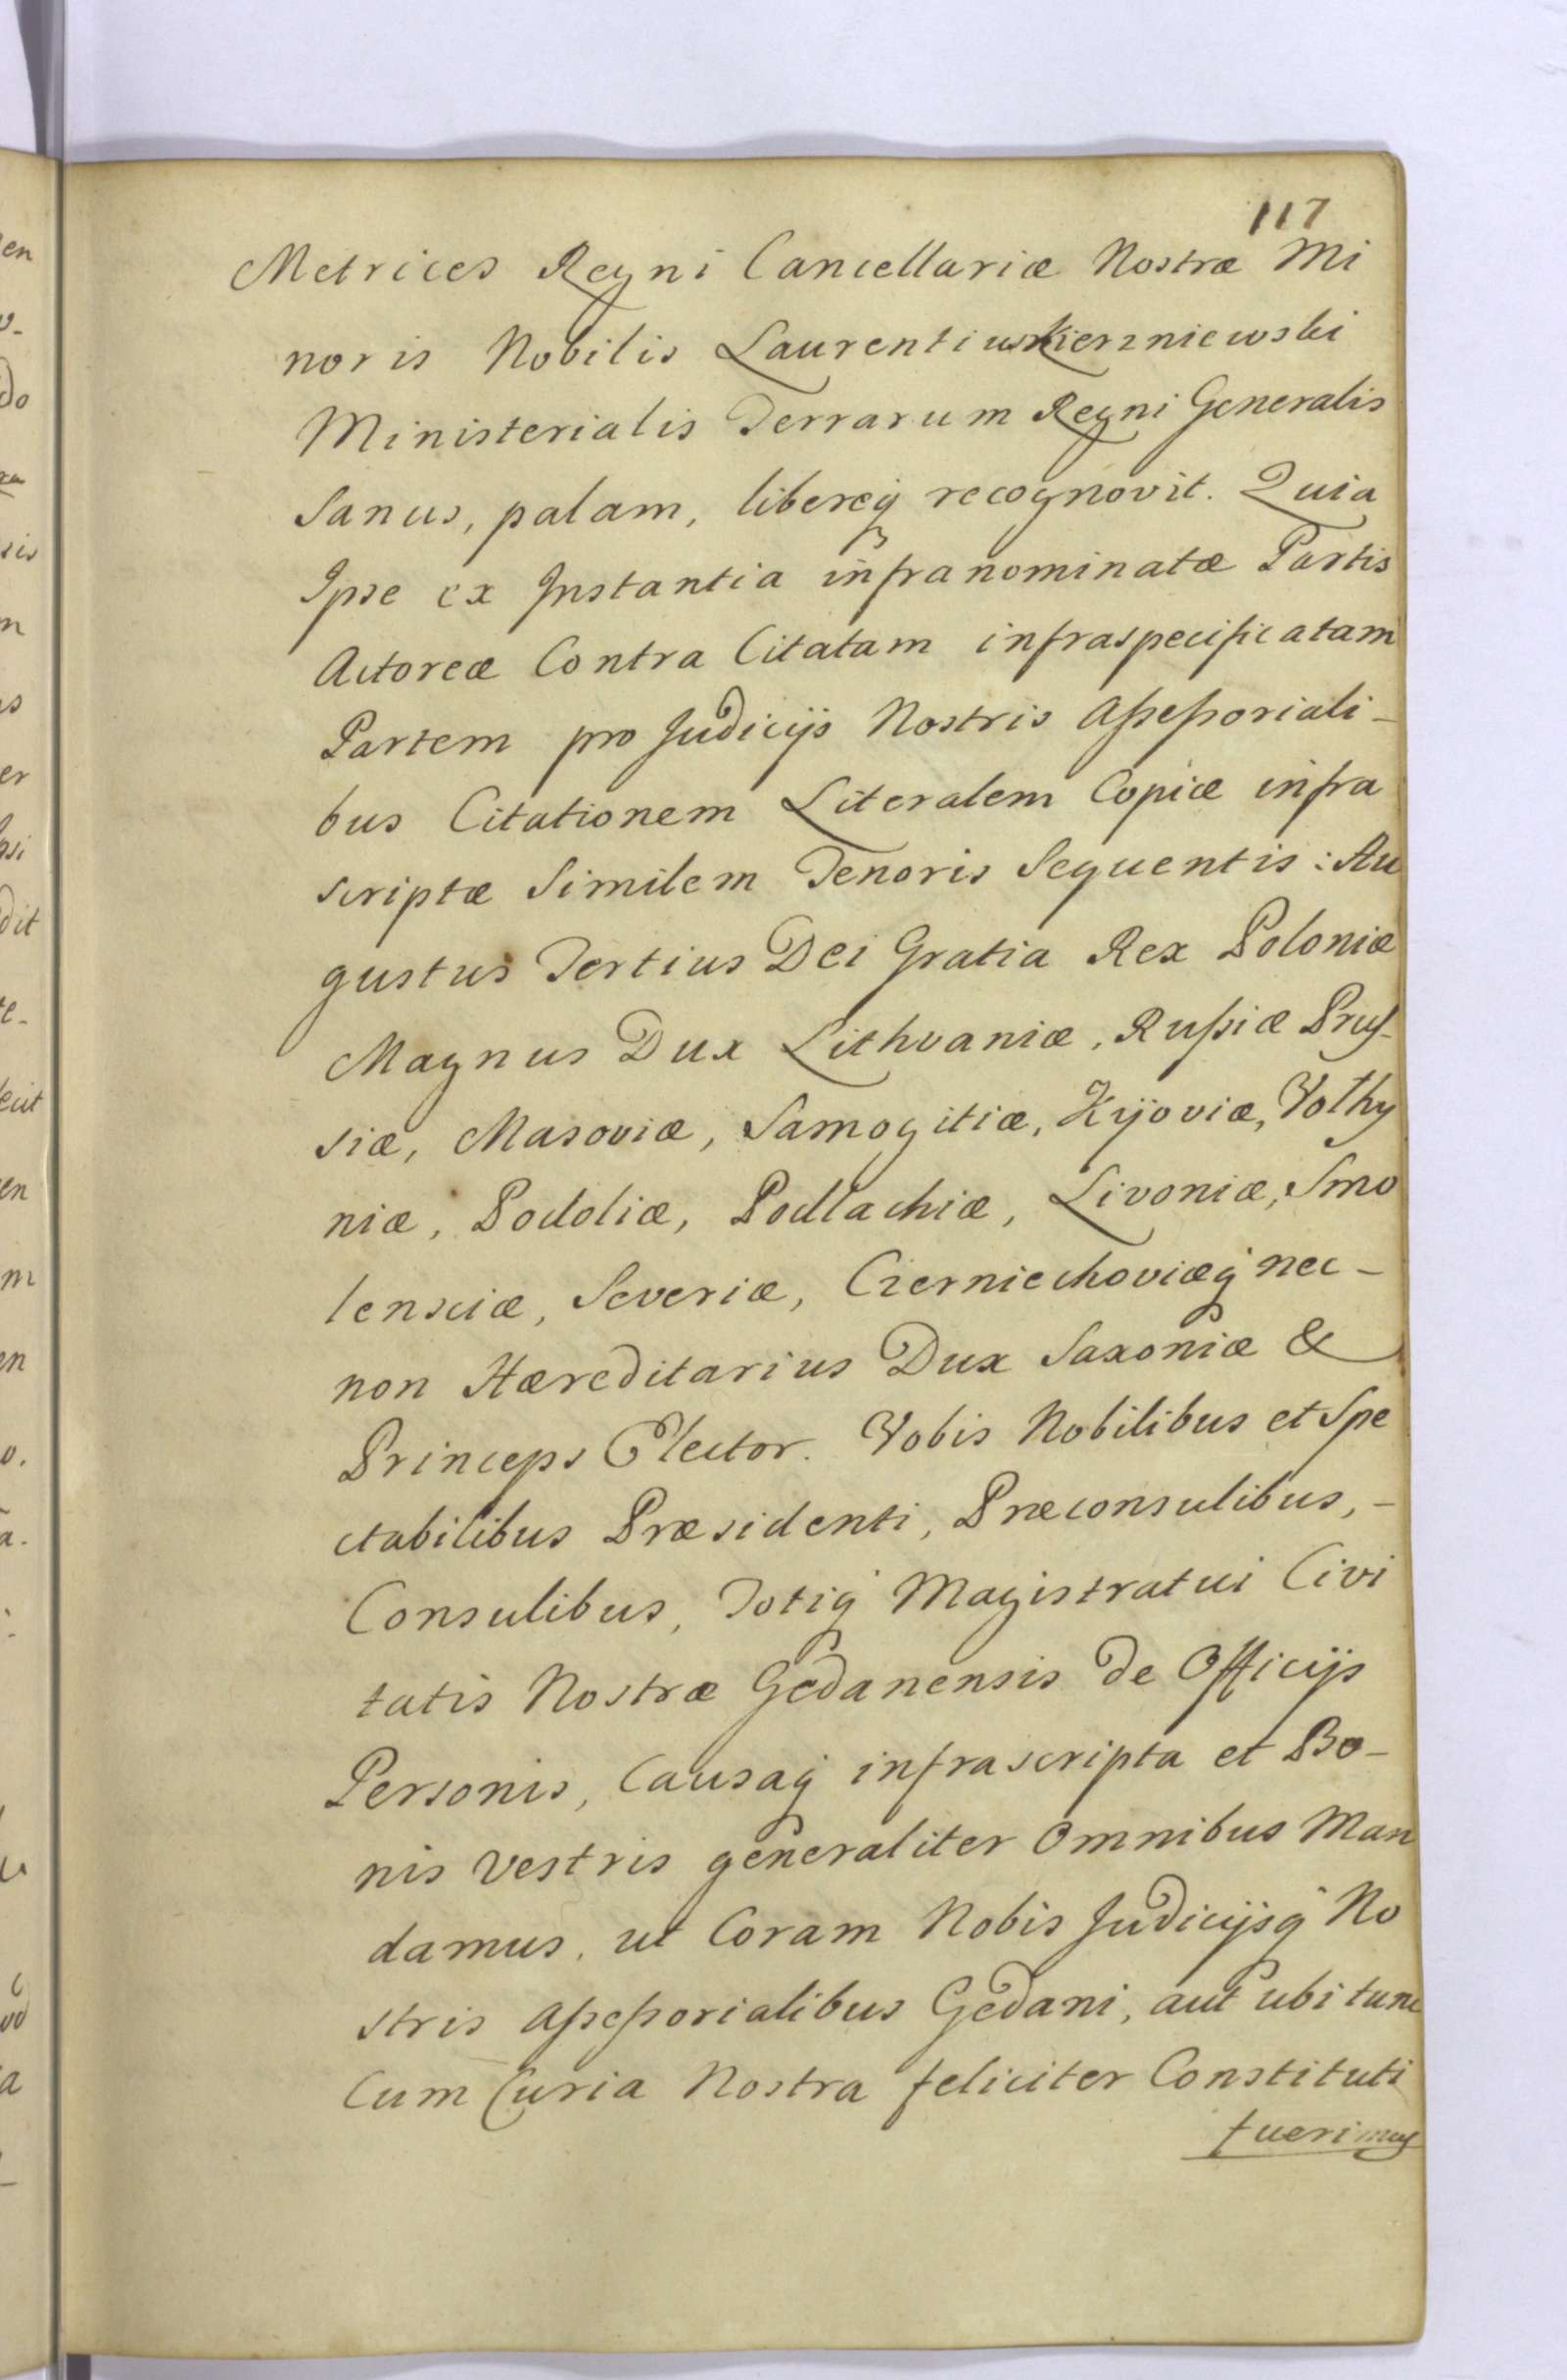 117
Metrices Regni Cancellariæ Nostræ Mi
noris Nobilis Laurentius Kierzniewski
Ministerialis Terrarum Regni Generalis
Sanus, palam, libereq́ recognovit. Quia
Ipse ex Instantia infranominatæ Partis
Actoreæ Contra Citatam infraspecificatam
Partem pro Judicijs Nostris Assessoriali-
bus Citationem Literalem Copiæ infra
scriptæ Similem Tenoris Sequentis: Au
gustus Tertius Dei Gratia Rex Poloniæ
Magnus Dux Lithvaniæ, Russiæ Prus-
siæ, Masoviæ, Samogitiæ, Kijoviæ, Volhy
niæ, Podoliæ, Podlachiæ, Livoniæ, Smo
lensciæ, Severiæ, Czerniechoviæq́ nec-
non Hæreditarius Dux Saxoniæ &
Princeps Elector. Vobis Nobilibus et Spe
ctabilibus Præsidenti, Præconsulibus,-
Consulibus, Totiq́ Magistratui Civi
tatis Nostræ Gedanensis de Officijs
Personis, Causaq́ infrascripta et Bo-
nis vestris generaliter Omnibus Man
damus, ut Coram Nobis Judicijsq́ No
stris Assessorialibus Gedani, aut ubi tunc
Cum Curia Nostra feliciter Constituti
fuerimus